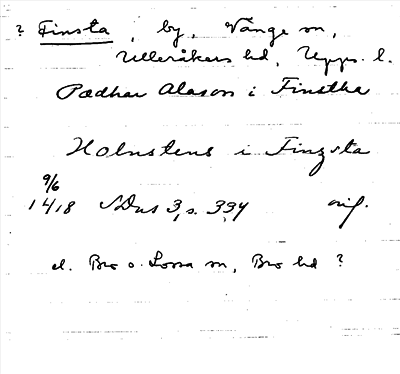 ? Finsta, by, Vänge sn,
Ulleråkers hd, Upps. l.
Pædhar Alason i Finstha
Holmstens i Finzsta
9/6
1418 SDns 3, s. 334 orig.
el. Bro o. Lossa sn, Bro hd ?